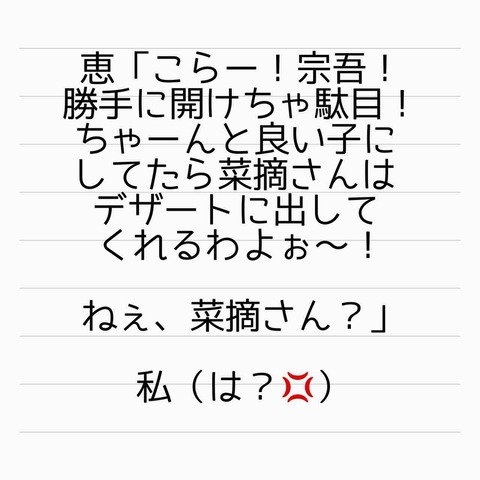 恵「こらー！宗吾！
勝手に開けちゃ駄目！
ちゃーんと良い子に
してたら菜摘さんは
デザートに出して
くれるわよぉ〜！
ねぇ、菜摘さん？」
私（は？💢）